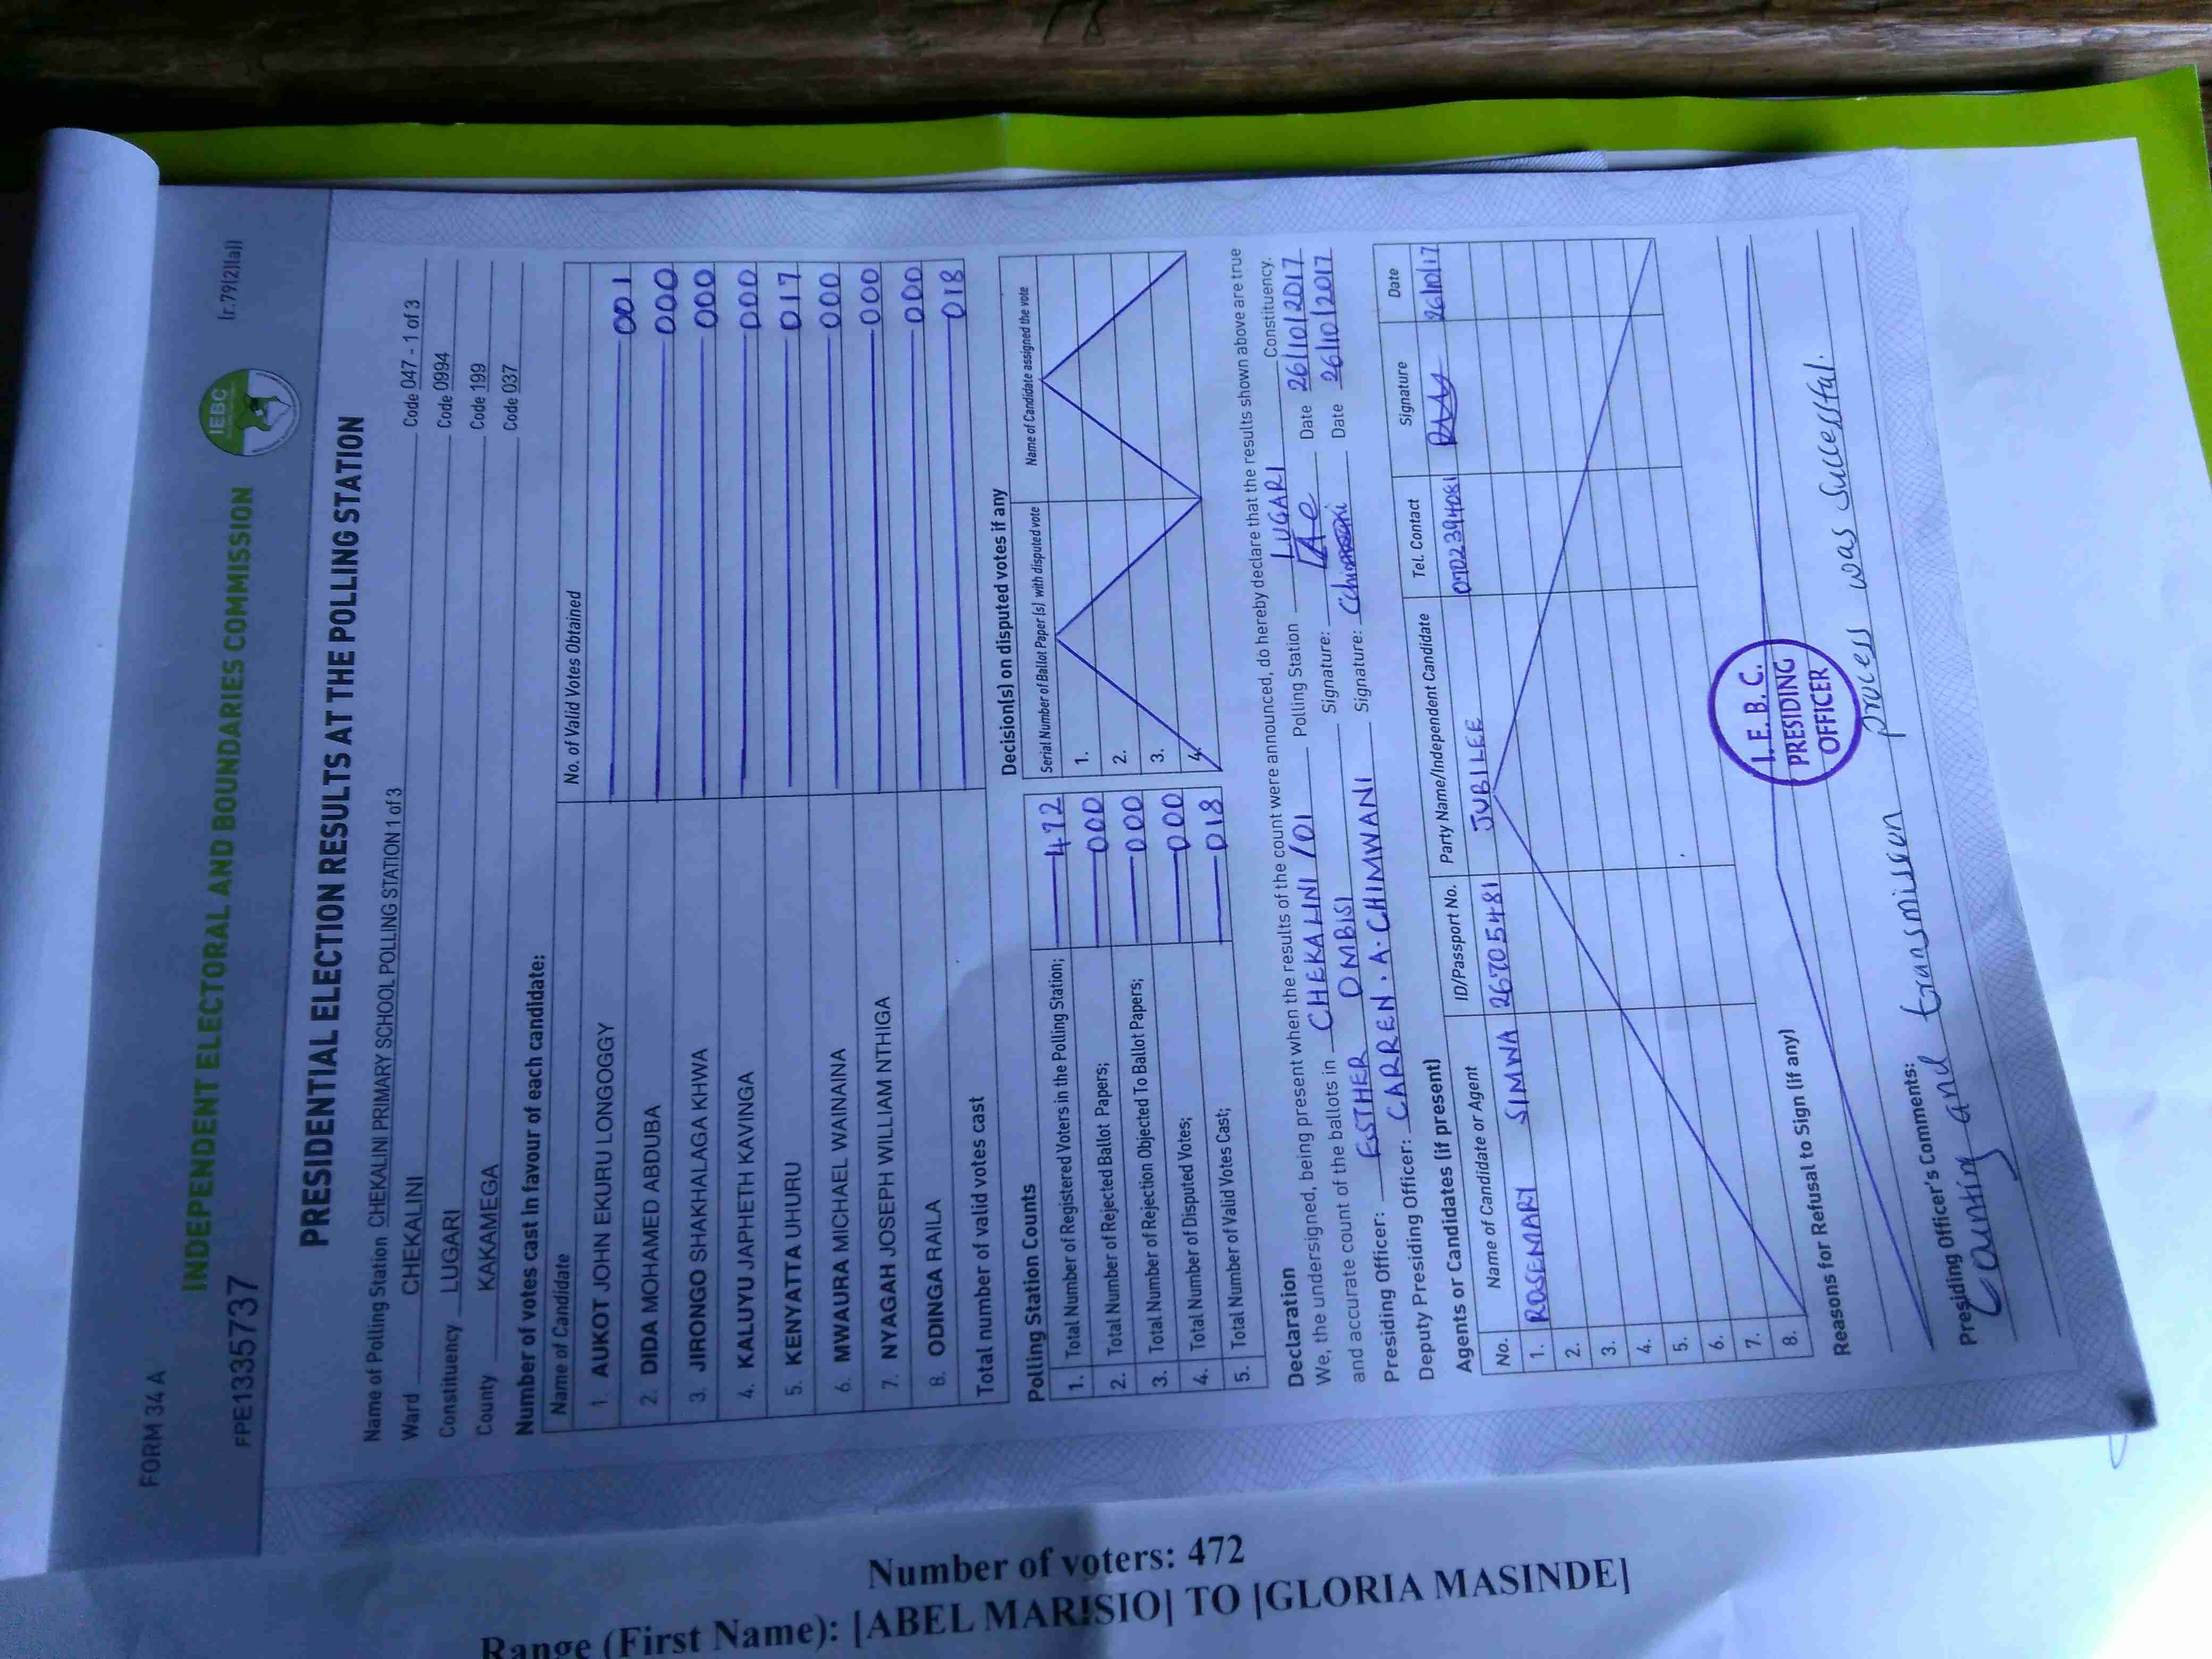 FORM 34 A
[r.79(2)(a)]
IEBC
INDEPENDENT ELECTORAL AND BOUNDARIES COMMISSION
FPE1335737
PRESIDENTIAL ELECTION RESULTS AT THE POLLING STATION
Name of Polling Station CHEKALINI PRIMARY SCHOOL POLLING STATION 1 of 3 Code 047 - 1 of 3
Ward CHEKALINI Code 0994
Constituency LUGARI Code 199
County KAKAMEGA Code 037
Number of votes cast in favour of each candidate:
Name of Candidate No. of Valid Votes Obtained
1. AUKOT JOHN EKURU LONGOGGY 001
2. DIDA MOHAMED ABDUBA 000
3. JIRONGO SHAKHALAGA KHWA 000
4. KALUYU JAPHETH KAVINGA 000
5. KENYATTA UHURU 017
6. MWAURA MICHAEL WAINAINA 000
7. NYAGAH JOSEPH WILLIAM NTHIGA 000
8. ODINGA RAILA 000
Total number of valid votes cast 018
Polling Station Counts
1. Total Number of Registered Voters in the Polling Station; 472
2. Total Number of Rejected Ballot Papers; 000
3. Total Number of Rejection Objected To Ballot Papers; 000
4. Total Number of Disputed Votes; 000
5. Total Number of Valid Votes Cast; 018
Decision(s) on disputed votes if any
Serial Number of Ballot Paper (s) with disputed vote Name of Candidate assigned the vote
1.
2.
3.
4.
Declaration
We, the undersigned, being present when the results of the count were announced, do hereby declare that the results shown above are true
and accurate count of the ballots in CHEKALINI /01 Polling Station LUGARI Constituency.
Presiding Officer: ESTHER OMBISI Signature: Date 26/10/2017
Deputy Presiding Officer: CARREN . A . CHIMWANI Signature: Date 26/10/2017
Agents or Candidates (if present)
No. Name of Candidate or Agent ID/Passport No. Party Name/Independent Candidate Tel. Contact Signature Date
1. ROSEMARY SIMWA 26705481 JUBILEE 0702394061 26/10/17
2.
3.
4.
5.
6.
7.
8.
Reasons for Refusal to Sign (if any)
I. E. B. C.
PRESIDING
OFFICER
Presiding Officer's Comments:
Counting and transmission process was successful.
Number of voters: 472
Range (First Name): [ABEL MARISIO] TO [GLORIA MASINDE]